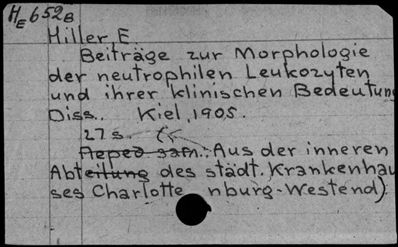 HE 652B
Hiller E
Beiträge zur Morphologie
der neutrophilen Leukozyten
und ihrer klinischen Bedeutung
Diss.. Kiel, 1905.
27 s.
Aus der inneren
Abteilung des städt. Krankenhau
ses Charlotte nburg-Westend)